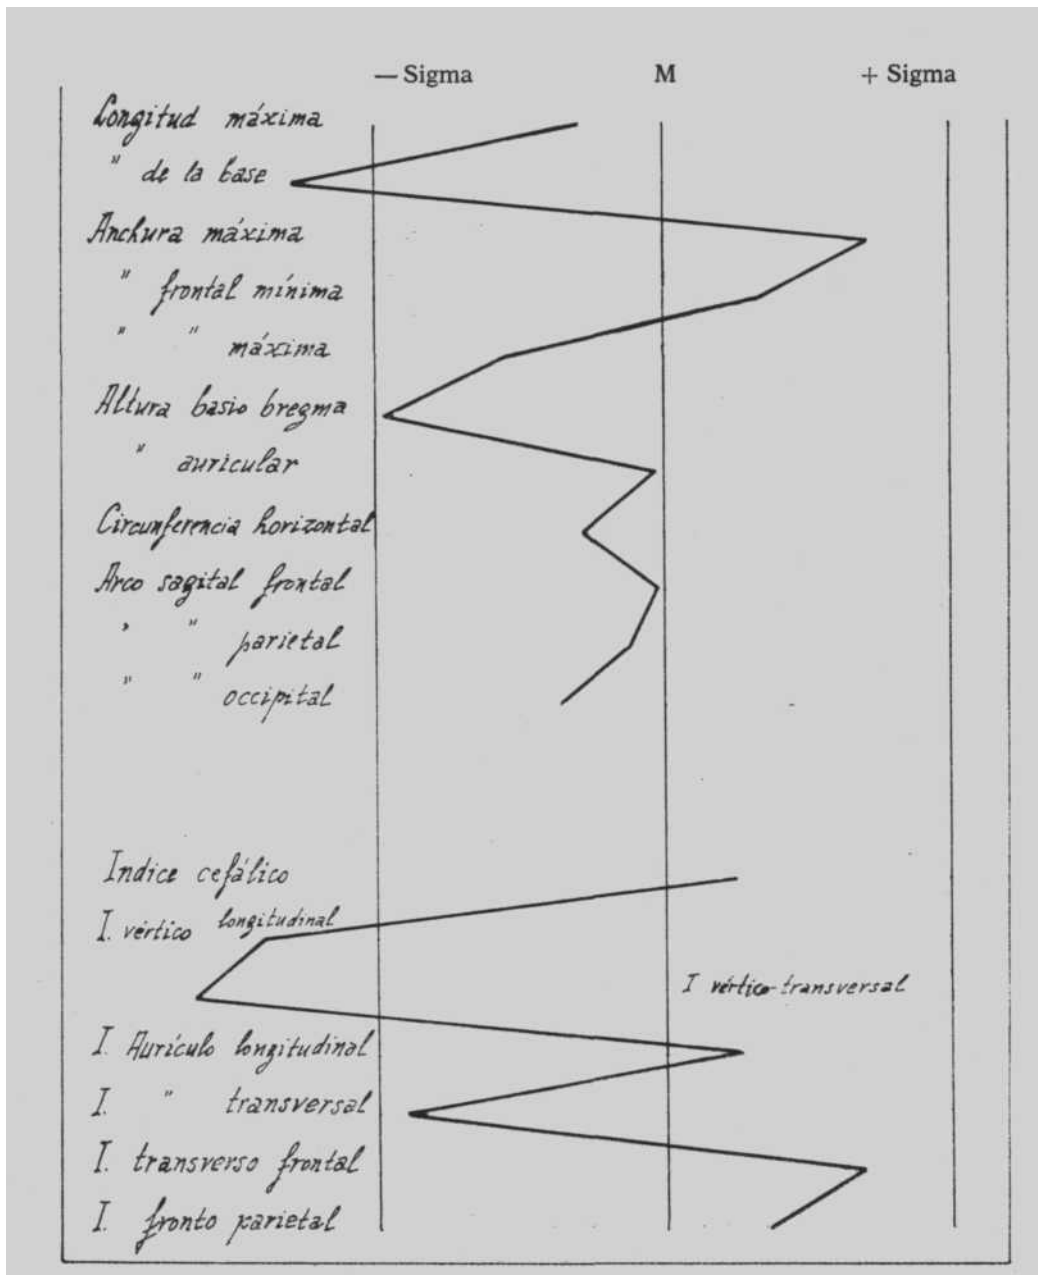 — Sigma M + Sigma
Longitud máxima
" de la base
Anchura máxima
" frontal mínima
" " máxima
Altura basio bregma
" auricular
Circunferencia horizontal
Arco sagital frontal
" " parietal
" " occipital
Indice cefálico
I. vértico longitudinal
I vértico-transversal
I. Aurículo longitudinal
I. " transversal
I. transverso frontal
I. fronto parietal